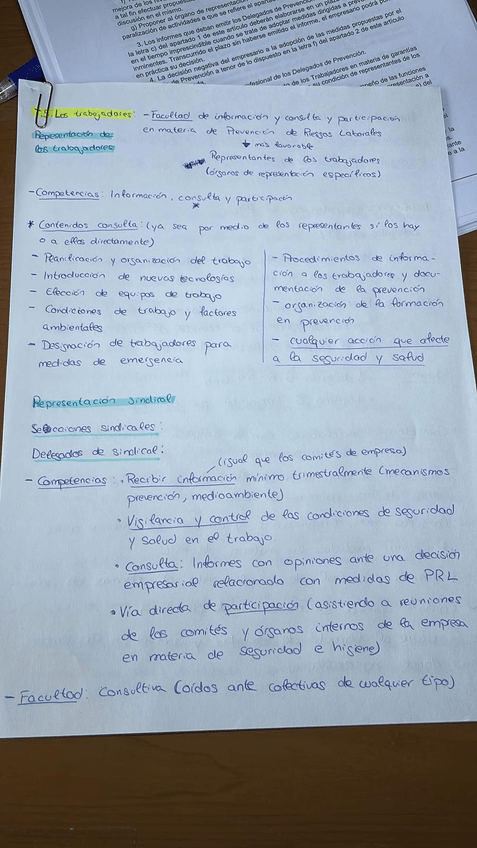 mejora de los n
al fin efectuar propuestas
discusión en el mismo.
g) Proponer al órgano de represent
paralización de actividades a que se refiere el aparta
3. Los informes que deban emitir los Delegados de Prevención
la letra c) del apartado 1 de este artículo deberán elaborarse en un plazo
en el tiempo imprescindible cuando se trate de adoptar medidas dirigidas a
inminentes. Transcurrido el plazo sin haberse emitido el informe, el empresario podrá
en práctica su decisión.
4. La decisión negativa del empresario a la adopción de las medidas propuestas por el
de Prevención a tenor de lo dispuesto en la letra f) del apartado 2 de este artículo
profesional de los Delegados de Prevención.
de los Trabajadores en materia de garantías
su condición de representantes de los
T.5. Los trabajadores: - Facultad de información y consulta y participación
Representación de en materia de Prevención de Riesgos Laborales
los trabajadores ↓ más favorable
Representantes de los trabajadores
(órganos de representación específicos)
- Competencias: Información, consulta y participación
*
* Contenidos consulta: (ya sea por medio de los representantes si los hay
o a ellos directamente)
- Planificación y organización del trabajo
- Introducción de nuevas tecnologías
- Elección de equipos de trabajo
- Condiciones de trabajo y factores
ambientales
- Designación de trabajadores para
medidas de emergencia
- Procedimientos de informa-
ción a los trabajadores y docu-
mentación de la prevención
- organización de la formación
en prevención
- cualquier acción que afecte
a la seguridad y salud
Representación sindical
Secciones sindicales:
Delegados de sindical:
(igual que los comités de empresa)
- Competencias: • Recibir información mínimo trimestralmente (mecanismos
prevención, medioambiente)
• Vigilancia y control de las condiciones de seguridad
y salud en el trabajo
• Consulta: Informes con opiniones ante una decisión
empresarial relacionado con medidas de PRL
• Vía directa de participación (asistiendo a reuniones
de los comités y órganos internos de la empresa
en materia de seguridad e higiene)
- Facultad: Consultiva (oídos ante colectivas de cualquier tipo)